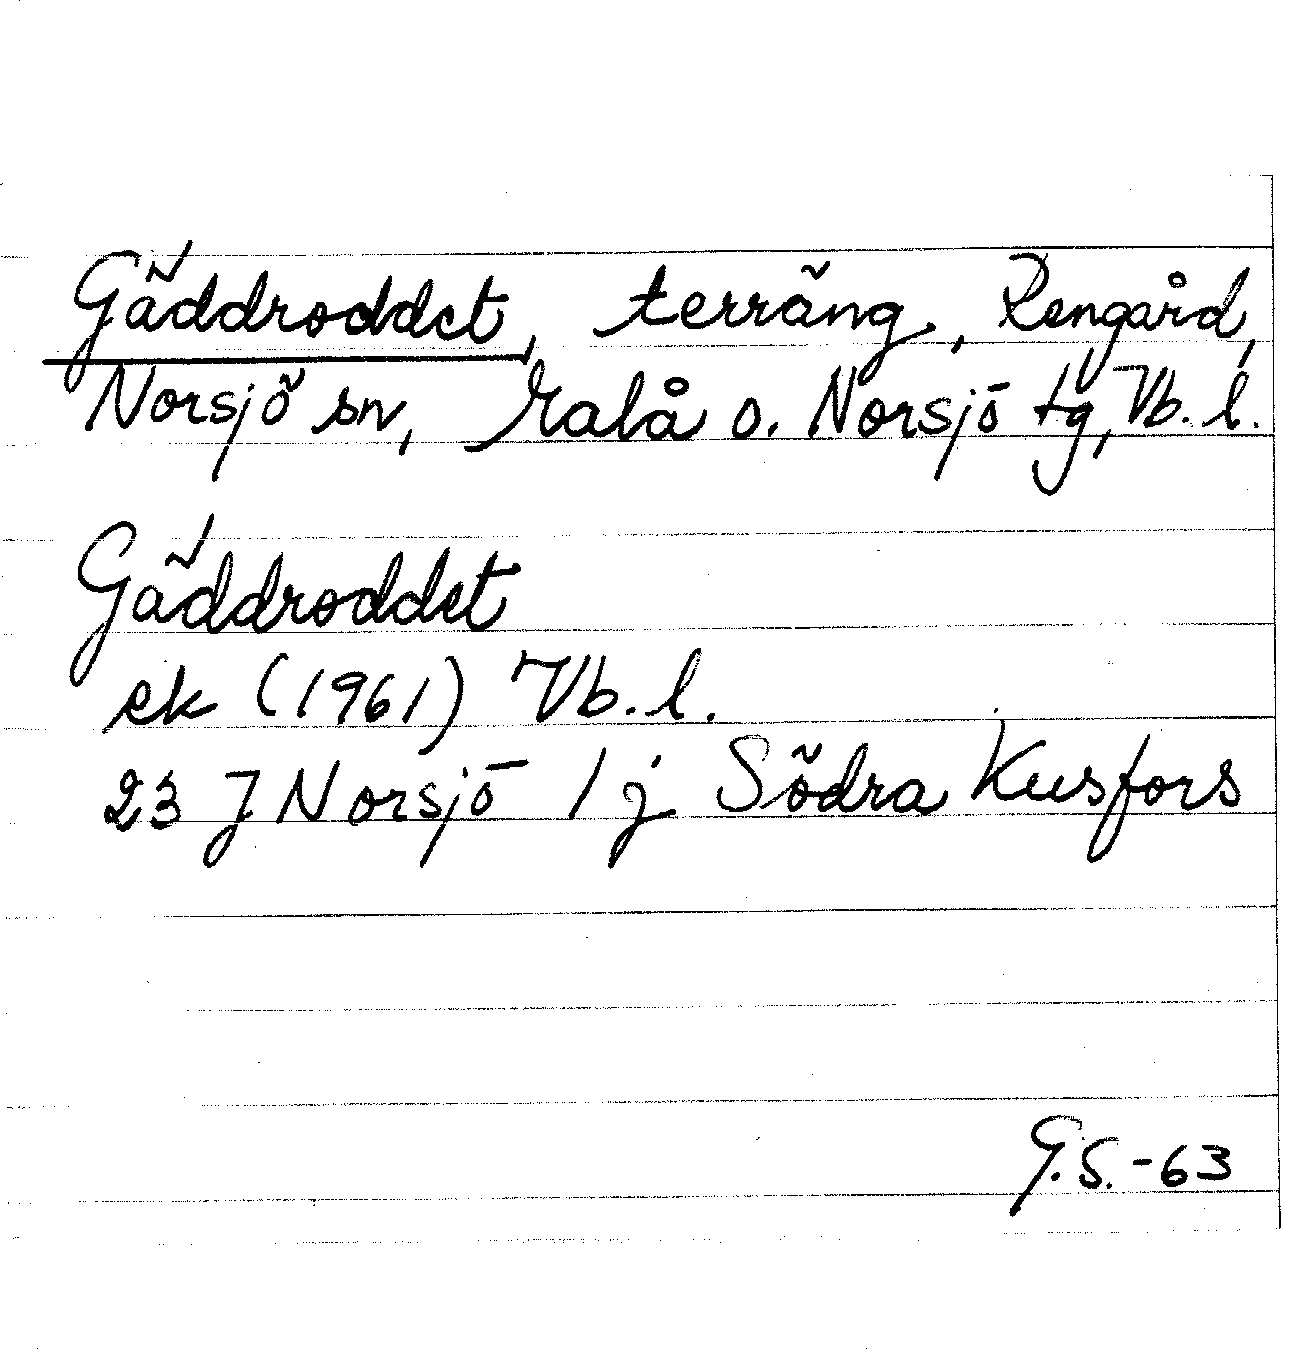 Gäddroddet, terräng, Rengård,
Norsjö sn, Malå o. Norsjö tg, Vb. l.
Gäddroddet
ek (1961) Vb. l.
23 J Norsjö 1 j Södra Kusfors
G.S. -63